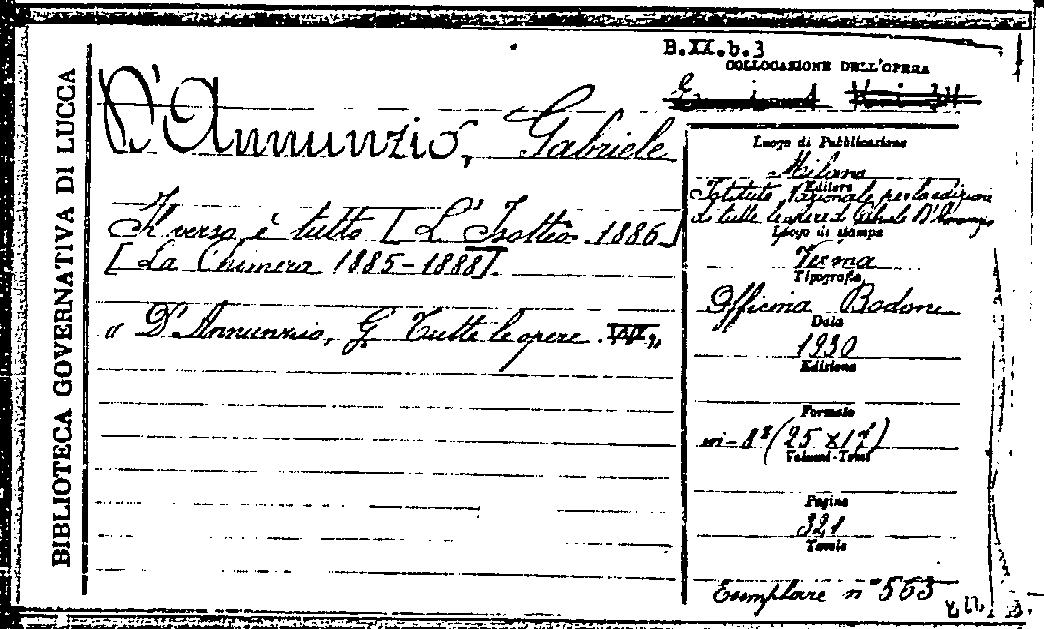 BIBLIOTECA GOVERNATIVA DI LUCCA
B.XX.b.3
COLLOCAZIONE DELL'OPERA
D'Annunzio, Gabriele
Il verso è tutto [L'Isottèo 1886]
[La Chimera 1885-1888].
« D'Annunzio, G. Tutte le opere
Luogo di Pubblicazione
Milano
Editore
Istituto Nazionale per la edizione
di tutte le opere di Gabriele D'Annunzio
Luogo di stampa
Verona
Tipografia
Officina Bodoni
Data
1930
Edizione
Formato
in-8° (25 x 17)
Volumi-Tomi
Pagine
321
Tavole
Esemplare n° 563